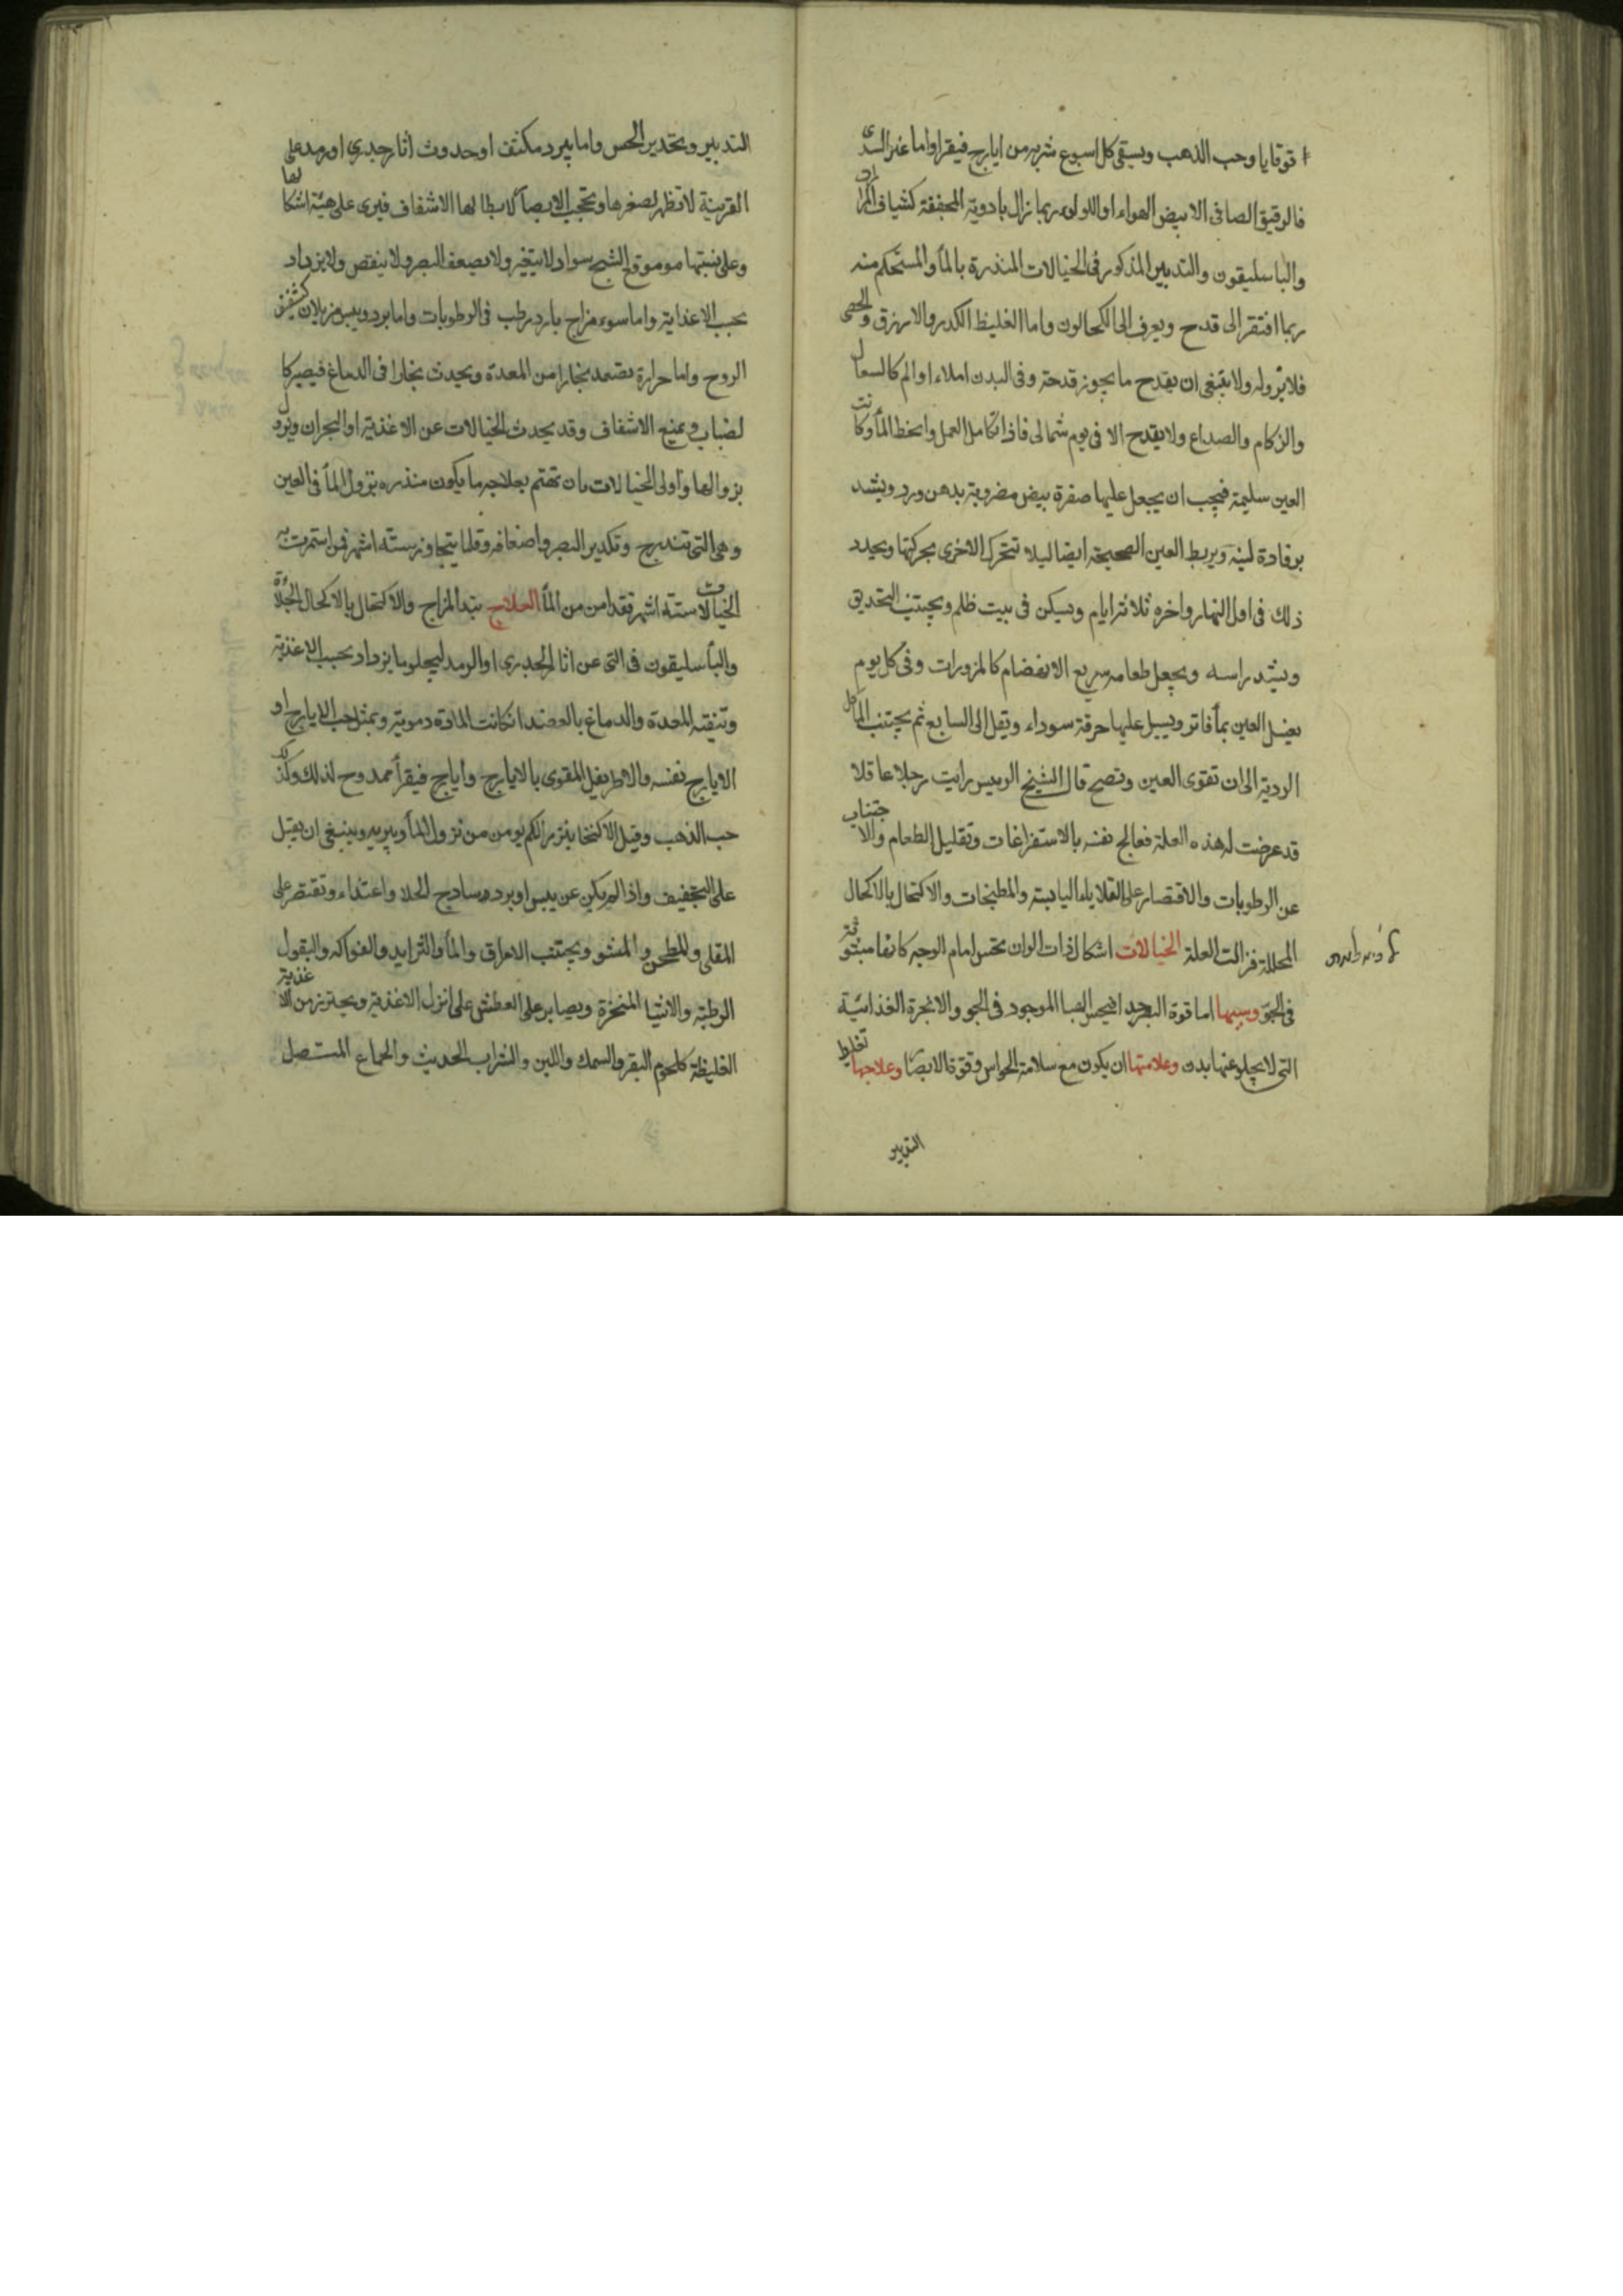 قوقايا وحب الذهب ويسقى كل اسبوع شربه من ايارج فيقرا واما غير السدى
فالرقيق الصافى الابيض الهواء او اللولوء ربما زال بادوية المجففة كشياف المرارات
والباسليقون والتدبير المذكور فى الخيالات المنذرة بالمأ والمستحكم منه
ربما افتقر الى قدح ويعرف الى الكحالون واما الغليظ الكدر والازرق والجصى
فلا برؤله ولا ينبغى ان يقدح ما يجوز قدحه وفى البدن املاء او الم كالسعال
والزكام والصداع ولا يقدح الا فى يوم شمالى فاذا تكامل العمل وانحط المأ وكانت
العين سليمة فيجب ان يجعل عليها صفرة بيض مضروبة بدهن ورد ويشد
برفادة لينه ويربط العين الصحيحة ايضا ليلا تتحرك الاخرى بحركتها ويجدد
ذلك فى اول النهار واخره ثلاثة ايام ويسكن فى بيت ظلم ويجتنب التحديق
ويشد راسه ويجعل طعامه سريع الانهضام كالمزورات وفى كل يوم
يغسل العين بمأ فاتر ويسبل عليها خرقة سوداء وتقل الى السابع ثم يجتنب المأكل
الردية الى ان تقوى العين وتصح قال الشيخ الرييس رايت رجلا عاقلا
قد عرضت له هذه العلة فعالج نفسه بالاستفراغات وتقليل الطعام والاجتناب
عن الرطوبات والاقتصار على القلايا واليابسة والمطبخات والاكتحال بالاكحال
المحللة فزالت العلة الخيالات اشكال ذات الوان تحس امام الوجه كانها مبثوثة
فى الجو وسببها اما قوة البصر جدا فيحس الهبا الموجود فى الجو والابخرة الغذائية
التى لا يخلو عنها بدن وعلامتها ان يكون مع سلامة الحواس وقوة الابصار وعلاجها تغليظ
التدبير
التدبير وتخدير الحس واما ببرد مكثف او حدوث اثار جدرى او رمد على
القرنية لا تظهر لصغرها وتحجب الابصار لابطالها الاشفاف فيرى على هيئة اشكالها
وعلى نسبتها من موقع الشبح سواد لا يتغير ولا يضعف البصر ولا ينقص ولا يزداد
بحسب الاغذاية واما سوء مزاج بارد رطب فى الرطوبات واما برد ويبس مزيلان شفيف
الروح واما حرارة تصعد بخارا من المعدة ويحدث بخارا فى الدماغ فيصير كا
لضباب ويمنع الاشفاف وقد يحدث الخيالات عن الاغذية او البحران ويزول
بزوالها واولى الخيالات بان تهتم بعلاجه ما يكون منذره بنزول المأ فى العين
وهى التى تتدرج وتكدير البصر واضعافه وقلما يتجاوز سته اشهر فمن استمرت به
الخيالات ستة اشهر فقد امن من المأ العلاج يتبدا المزاج والاكتحال بالاكحال الجلأة
والبأسليقون فى التى عن اثار الجدرى او الرمد ليجلو ما يزداد بحسب الاغذية
وتنقيه المعدة والدماغ بالفصد ان كانت المادة دموية وبمثل حب الايارج او
الايارج نفسه والاطريفل المقوى بالايارج وايارج فيقرأ ممدوح لذلك وكذلك
حب الذهب وقيل الاكتحال ببزر الكم يومن من نزول المأ ويبريه وينبغى ان يقبل
على التجفيف واذا لم يكن عن يبس او برد ساذج الحلا واغتذاء وتقتصر على
المقلى والمطحن والمشو ويجتنب الامراق والمأ والثرايد والفواكه والبقول
الرطبه والاشيا المنجزة ويصابر على العطش على انزل الاغذية ويحترز من الاغذية
الغليظة كلحوم البقر والسمك واللبن والشراب الحديث والجماع المتصل